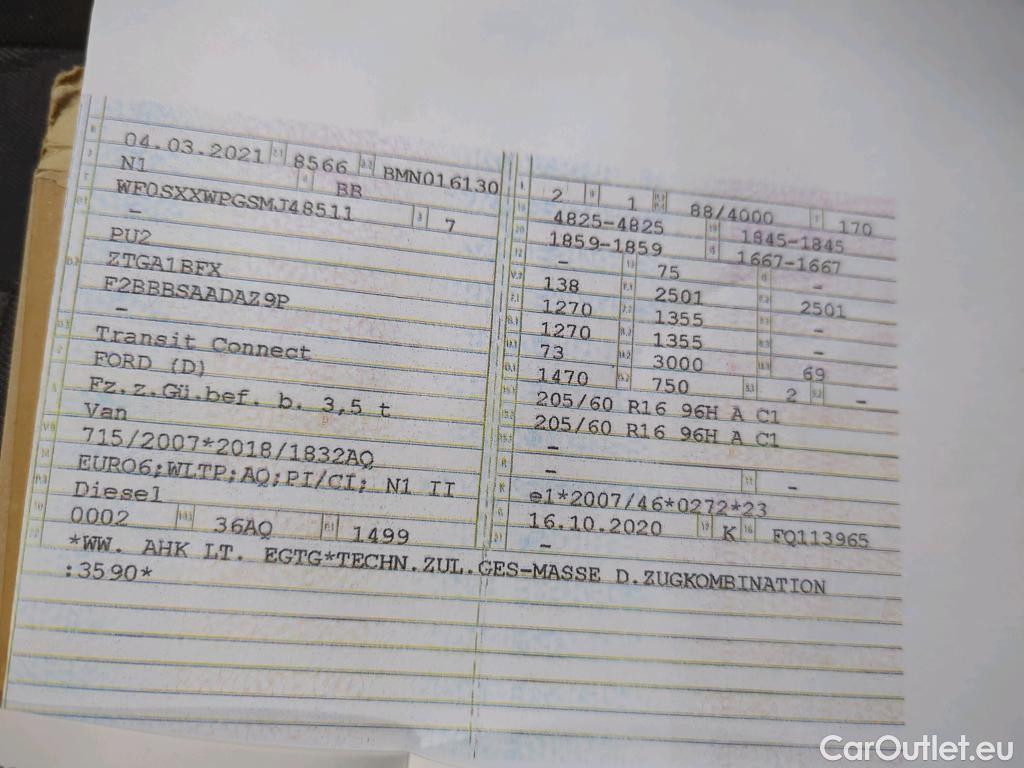 04.03.2021 8566 BMN016130
N1 BB
WF0SXXWPGSMJ48511 7
–
PU2
ZTGA1BFX
F2BBBSAADAZ9P
–
Transit Connect
FORD (D)
Fz.z.Gü.bef. b. 3,5 t
Van
715/2007*2018/1832AQ
EURO6;WLTP;AQ;PI/CI; N1 II
Diesel
0002 36AQ 1499
2 1 88/4000 170
4825-4825 1845-1845
1859-1859 1667-1667
– 75 –
138 2501 2501
1270 1355 –
1270 1355 –
73 3000 69
1470 750 2 –
205/60 R16 96H A C1
205/60 R16 96H A C1
–
– –
e1*2007/46*0272*23
16.10.2020 K FQ113965
–
*WW. AHK LT. EGTG*TECHN.ZUL.GES-MASSE D.ZUGKOMBINATION
:3590*
CarOutlet.eu